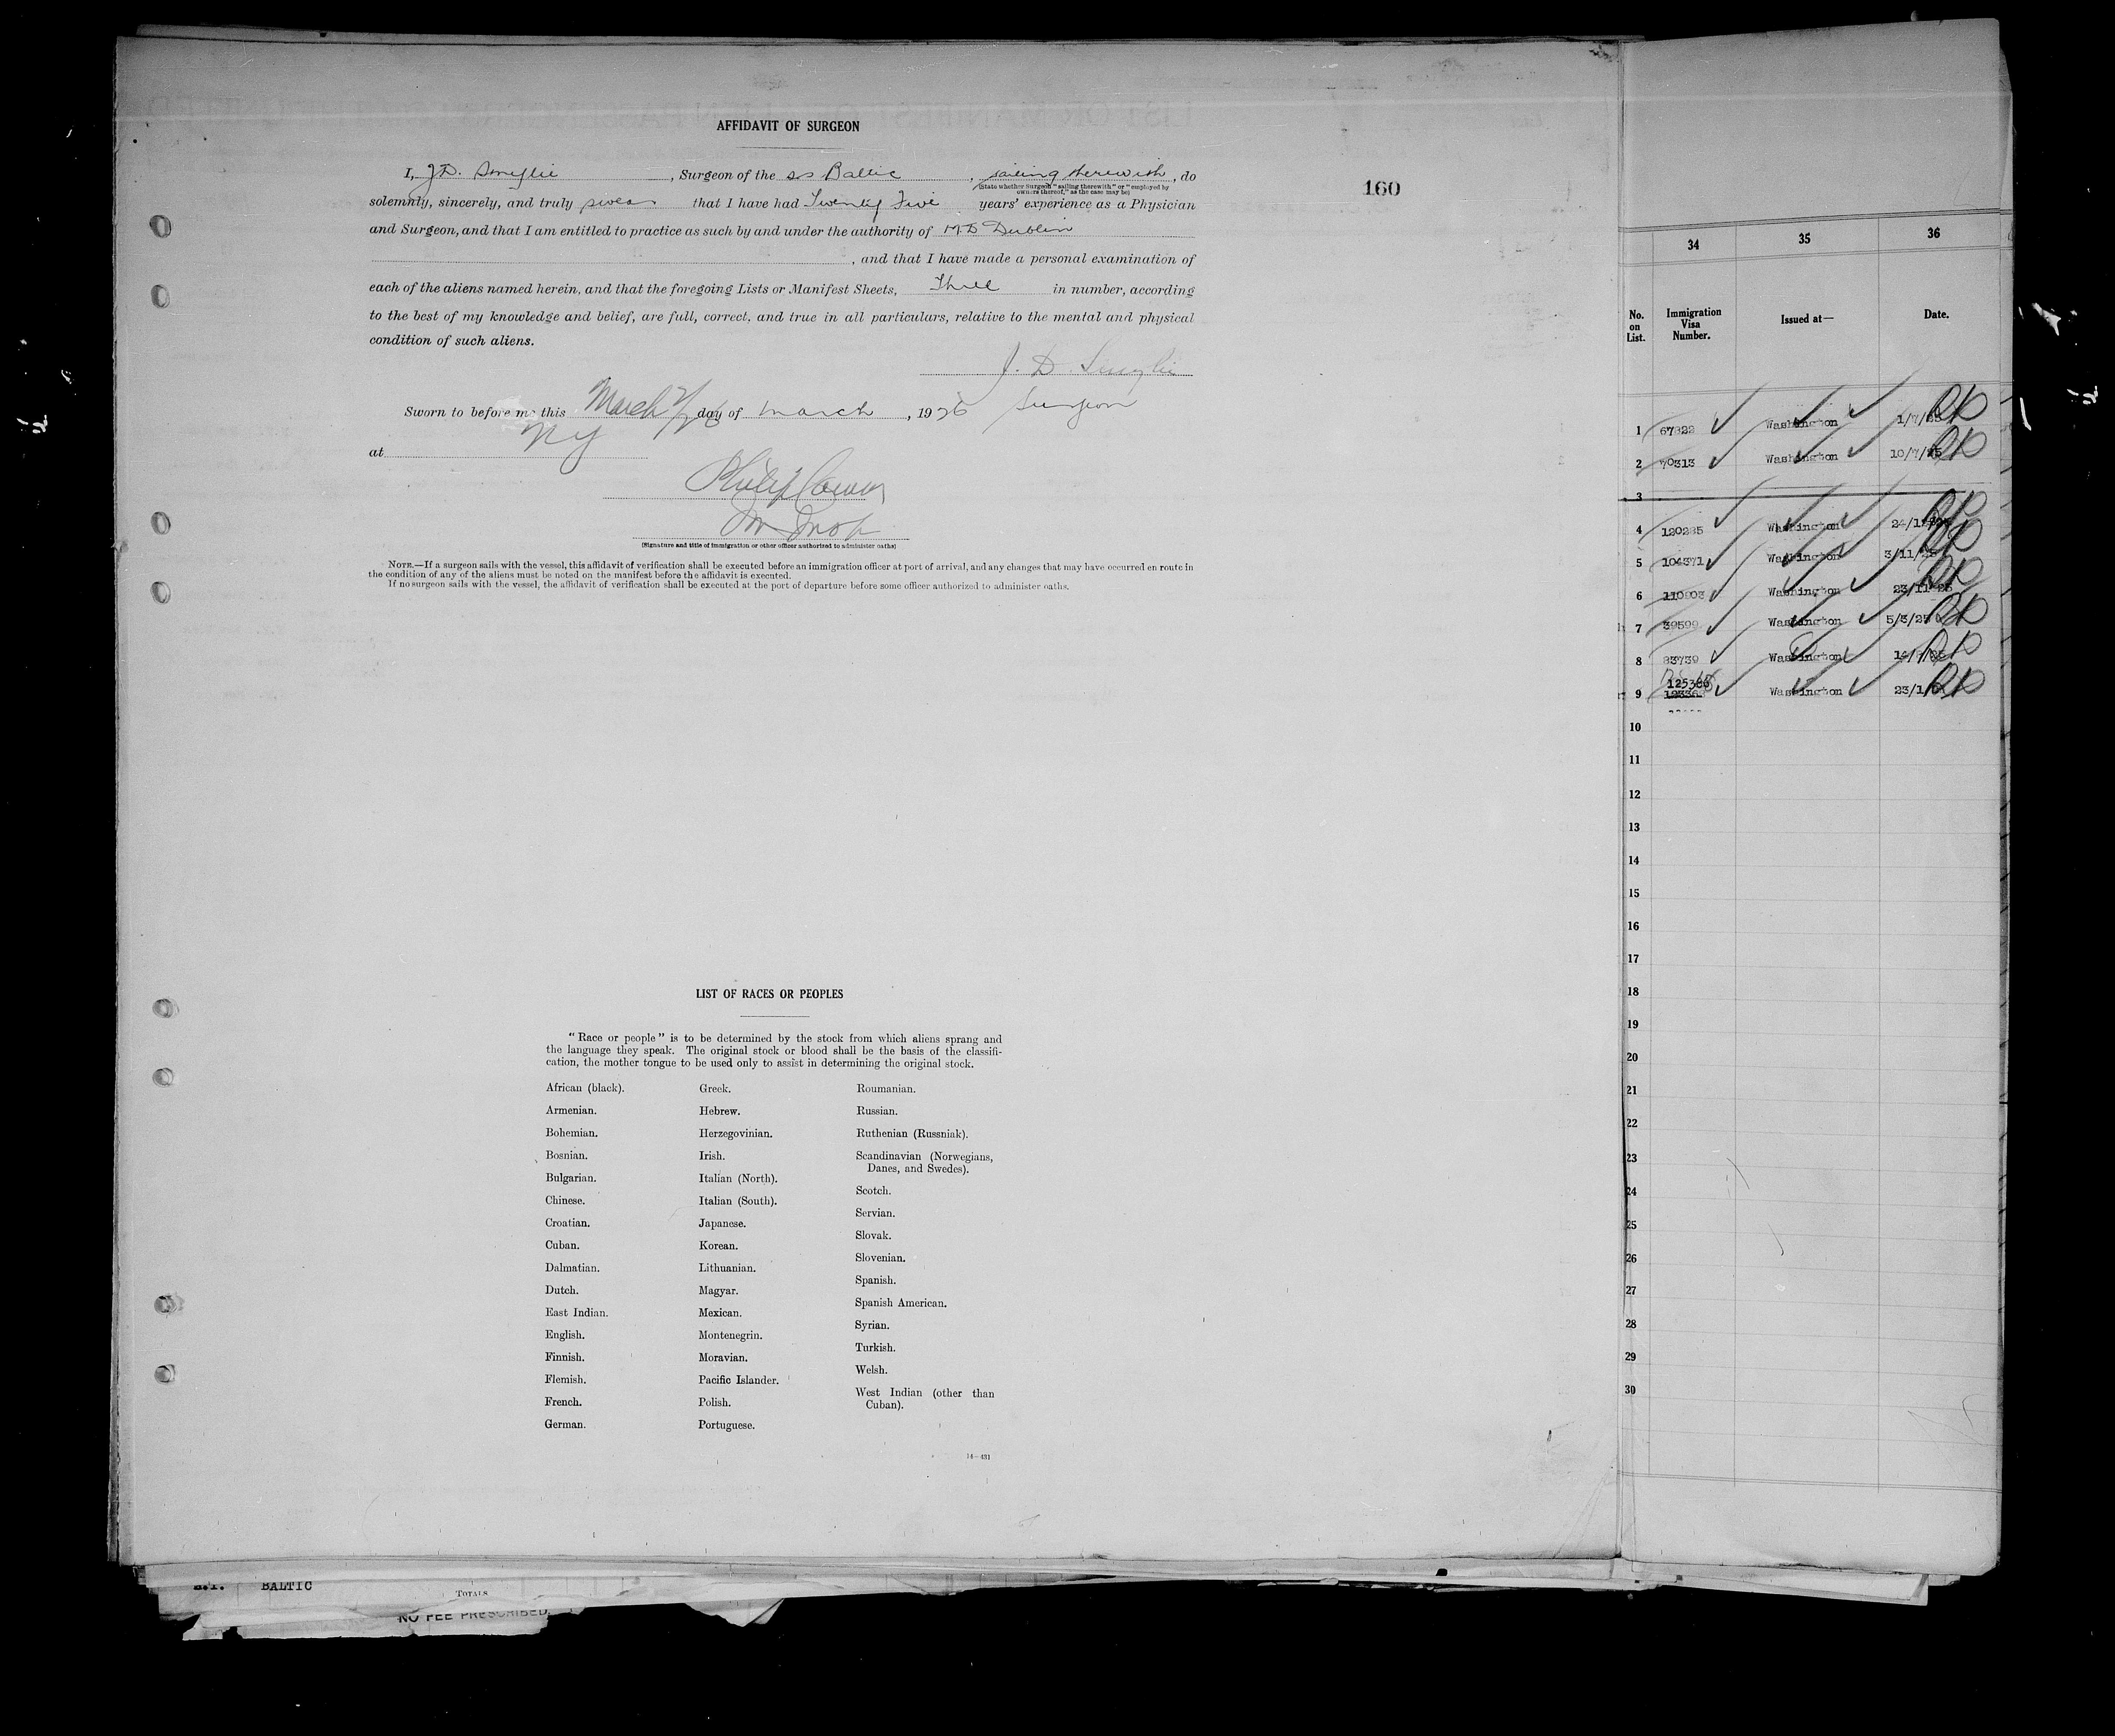 AFFIDAVIT OF SURGEON
I, J.D. Smylie, Surgeon of the ss Baltic, sailing therewith, do
(State whether Surgeon "sailing therewith" or "employed by owners thereof," as the case may be)
solemnly, sincerely, and truly swear that I have had Twenty Five years' experience as a Physician
and Surgeon, and that I am entitled to practice as such by and under the authority of M.D Dublin
, and that I have made a personal examination of
each of the aliens named herein, and that the foregoing Lists or Manifest Sheets, Three in number, according
to the best of my knowledge and belief, are full, correct, and true in all particulars, relative to the mental and physical
condition of such aliens.
J. D. Smylie
Surgeon
Sworn to before me this March day of March, 1926
at NY
(Signature and title of immigration or other officer authorized to administer oaths)
NOTE.—If a surgeon sails with the vessel, this affidavit of verification shall be executed before an immigration officer at port of arrival, and any changes that may have occurred en route in
the condition of any of the aliens must be noted on the manifest before the affidavit is executed.
If no surgeon sails with the vessel, the affidavit of verification shall be executed at the port of departure before some officer authorized to administer oaths.
LIST OF RACES OR PEOPLES
"Race or people" is to be determined by the stock from which aliens sprang and
the language they speak. The original stock or blood shall be the basis of the classifi-
cation, the mother tongue to be used only to assist in determining the original stock.
African (black).
Armenian.
Bohemian.
Bosnian.
Bulgarian.
Chinese.
Croatian.
Cuban.
Dalmatian.
Dutch.
East Indian.
English.
Finnish.
Flemish.
French.
German.
Greek.
Hebrew.
Herzegovinian.
Irish.
Italian (North).
Italian (South).
Japanese.
Korean.
Lithuanian.
Magyar.
Mexican.
Montenegrin.
Moravian.
Pacific Islander.
Polish.
Portuguese.
Roumanian.
Russian.
Ruthenian (Russniak).
Scandinavian (Norwegians,
Danes, and Swedes).
Scotch.
Servian.
Slovak.
Slovenian.
Spanish.
Spanish American.
Syrian.
Turkish.
Welsh.
West Indian (other than
Cuban).
14—431
160
34 35 36
No. on List. Immigration Visa Number. Issued at— Date.
1 67322 Washington
2 70313 Washington 10/7/25
3
4 120285 Washington
5 104371 Washington 3/11/25
6 Washington 23/11/25
7 39599 Washington 5/3/25
8 83739 Washington
9 125386 Washington
10
11
12
13
14
15
16
17
18
19
20
21
22
23
24
25
26
27
28
29
30
BALTIC
TOTALS
NO FEE PRESCRIBED